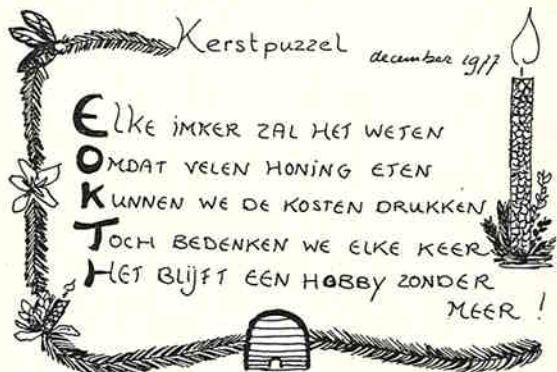 Kerstpuzzel
december 1977
ELKE IMKER ZAL HET WETEN
OMDAT VELEN HONING ETEN
KUNNEN WE DE KOSTEN DRUKKEN
TOCH BEDENKEN WE ELKE KEER
HET BLIJFT EEN HOBBY ZONDER
MEER !